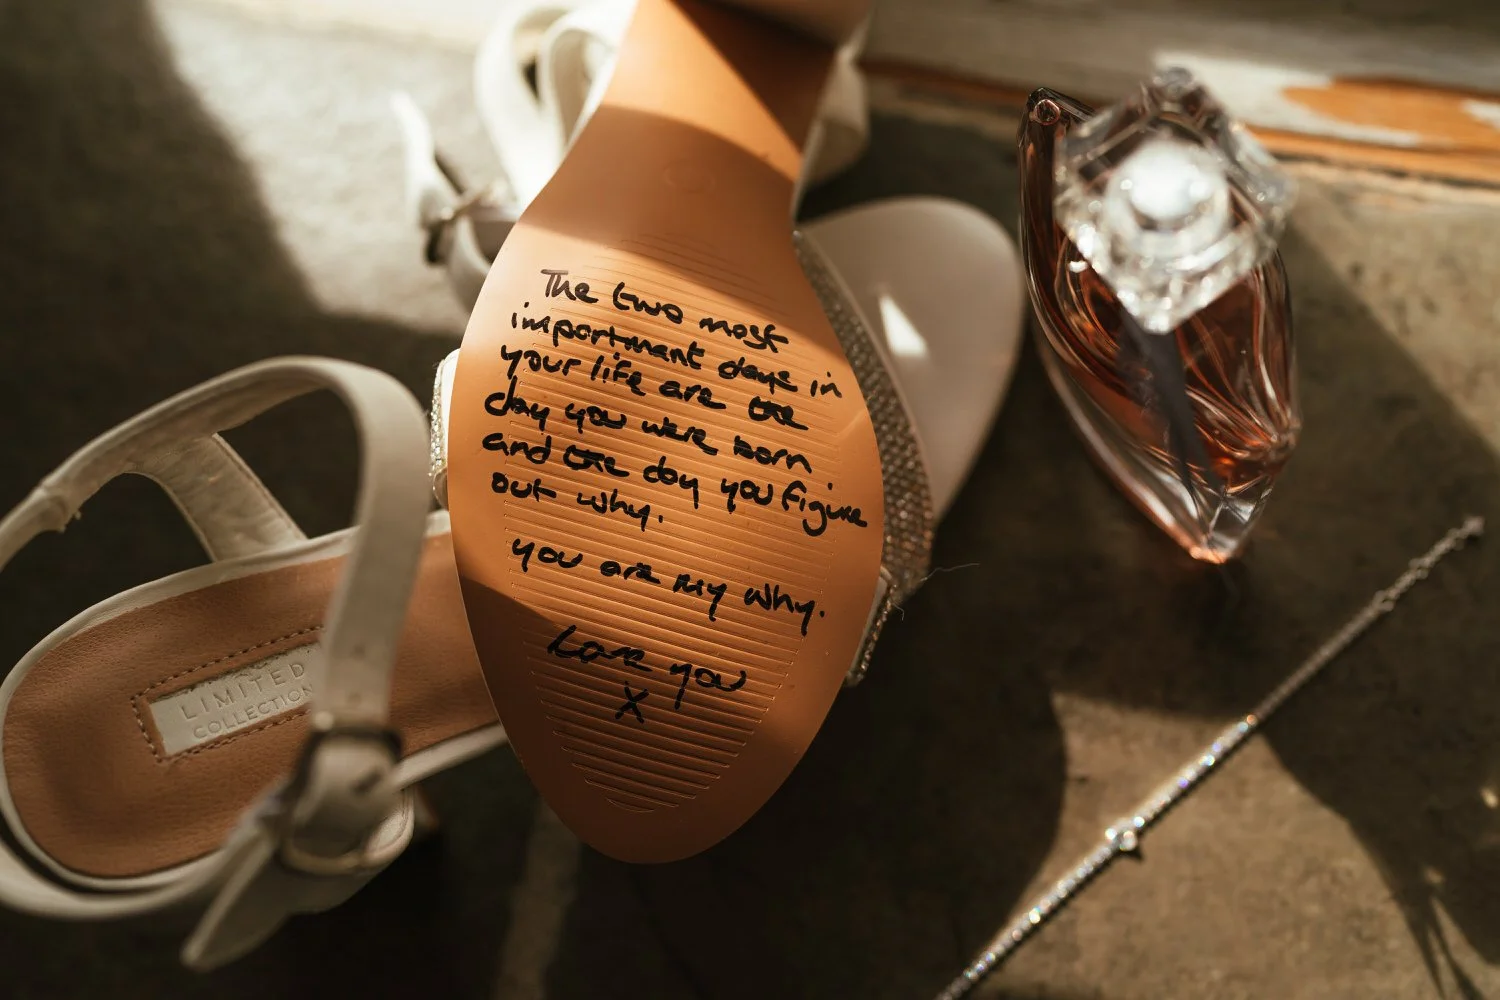 The two most
importmant days in
your life are the
day you were born
and the day you figure
out why.
you are my why.
Love you
X
LIMITED
COLLECTION